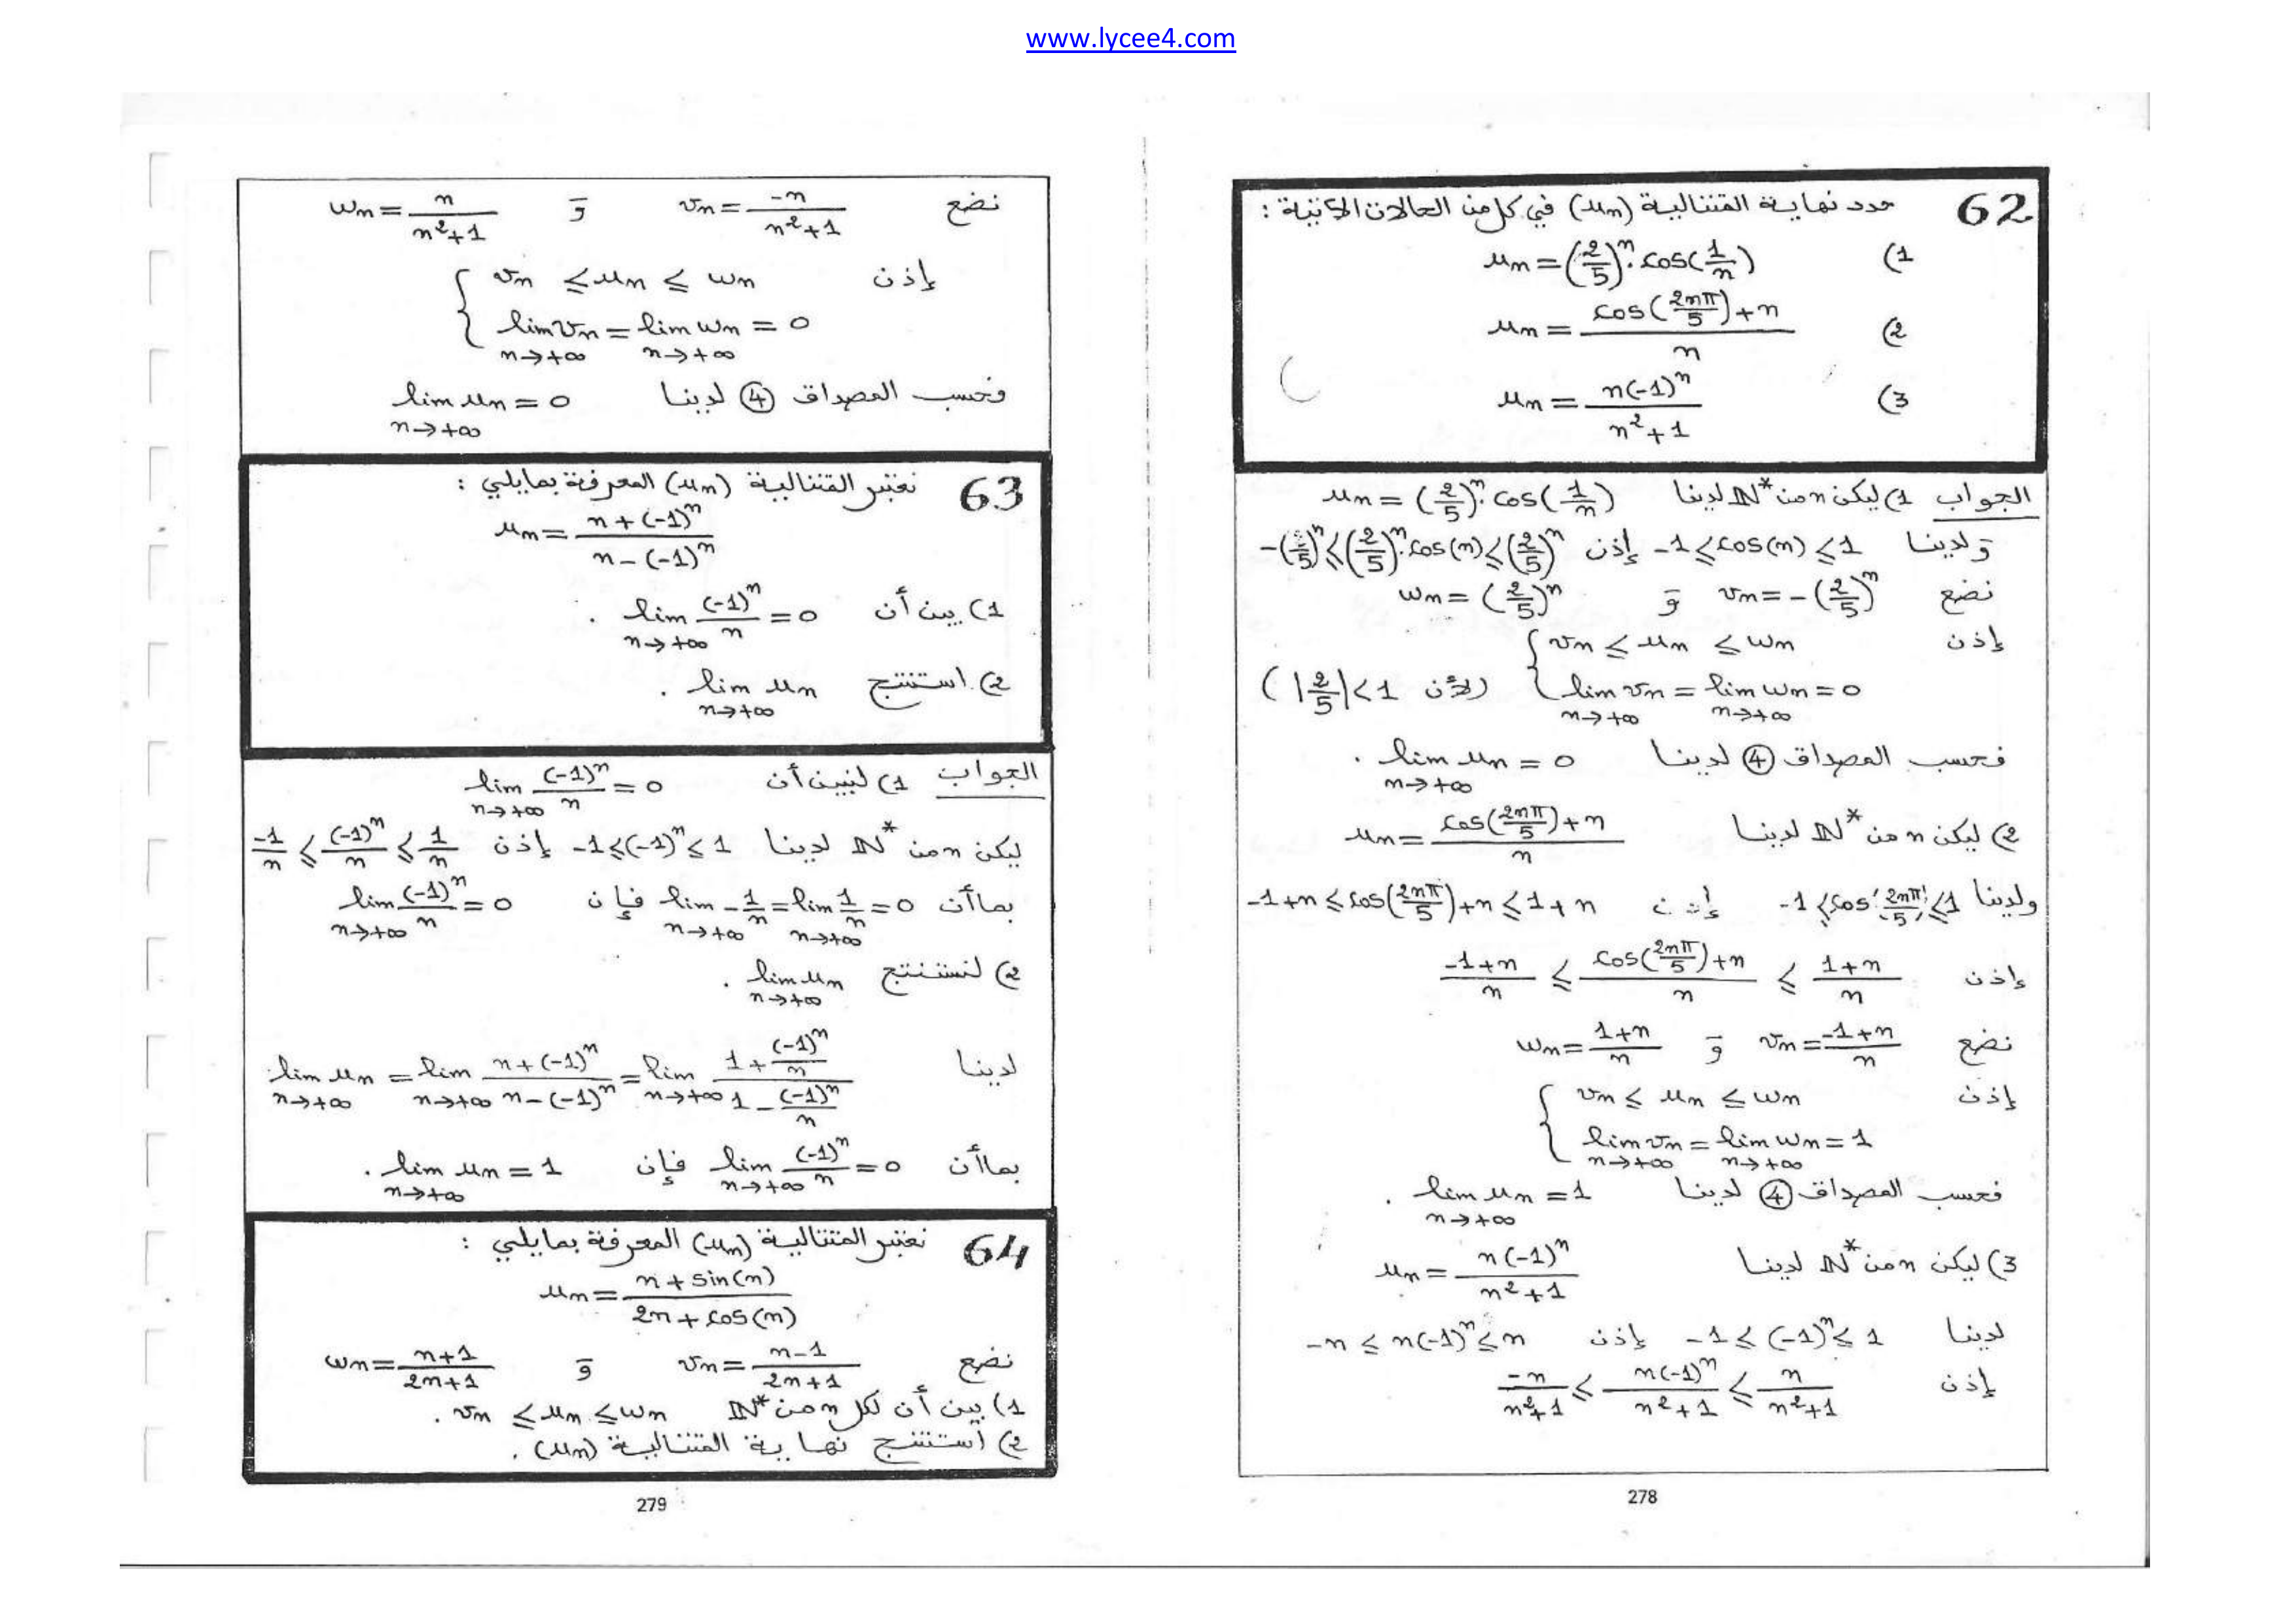 www.lycee4.com
62 حدد نهاية المتتالية (un) في كل من الحالات الآتية :
1) un = (2/5)^n . cos(1/n)
2) un = (cos(2nπ/5)+n)/n
3) un = n(-1)^n/(n²+1)
الجواب 1) ليكن n من ℕ* لدينا un = (2/5)^n . cos(1/n)
ولدينا -1 ≤ cos(n) ≤ 1 إذن -(2/5)^n ≤ (2/5)^n . cos(n) ≤ (2/5)^n
نضع vn = -(2/5)^n و wn = (2/5)^n
إذن { vn ≤ un ≤ wn
lim vn = lim wn = 0 (لأن |2/5| < 1)
n→+∞ n→+∞
فحسب المصداق ④ لدينا lim un = 0 .
n→+∞
2) ليكن n من ℕ* لدينا un = (cos(2nπ/5)+n)/n
ولدينا -1 ≤ cos(2nπ/5) ≤ 1 إذن -1+n ≤ cos(2nπ/5)+n ≤ 1+n
إذن (-1+n)/n ≤ (cos(2nπ/5)+n)/n ≤ (1+n)/n
نضع vn = (-1+n)/n و wn = (1+n)/n
إذن { vn ≤ un ≤ wn
lim vn = lim wn = 1
n→+∞ n→+∞
فحسب المصداق ④ لدينا lim un = 1 .
n→+∞
3) ليكن n من ℕ* لدينا un = n(-1)^n/(n²+1)
لدينا -1 ≤ (-1)^n ≤ 1 إذن -n ≤ n(-1)^n ≤ n
إذن -n/(n²+1) ≤ n(-1)^n/(n²+1) ≤ n/(n²+1)
278
نضع vn = -n/(n²+1) و wn = n/(n²+1)
إذن { vn ≤ un ≤ wn
lim vn = lim wn = 0
n→+∞ n→+∞
فحسب المصداق ④ لدينا lim un = 0
n→+∞
63 نعتبر المتتالية (un) المعرفة بمايلي :
un = (n+(-1)^n)/(n-(-1)^n)
1) بين أن lim (-1)^n/n = 0 .
n→+∞
2) استنتج lim un .
n→+∞
الجواب 1) لنبين أن lim (-1)^n/n = 0
n→+∞
ليكن n من ℕ* لدينا -1 ≤ (-1)^n ≤ 1 إذن -1/n ≤ (-1)^n/n ≤ 1/n
بما أن lim -1/n = lim 1/n = 0 فإن lim (-1)^n/n = 0
n→+∞ n→+∞ n→+∞
2) لنستنتج lim un .
n→+∞
لدينا lim un = lim (n+(-1)^n)/(n-(-1)^n) = lim (1+(-1)^n/n)/(1-(-1)^n/n)
n→+∞ n→+∞ n→+∞
بما أن lim (-1)^n/n = 0 فإن lim un = 1 .
n→+∞ n→+∞
64 نعتبر المتتالية (un) المعرفة بمايلي :
un = (n+sin(n))/(2n+cos(n))
نضع vn = (n-1)/(2n+1) و wn = (n+1)/(2n+1)
1) بين أن لكل n من ℕ* vn ≤ un ≤ wn .
2) استنتج نهاية المتتالية (un) .
279